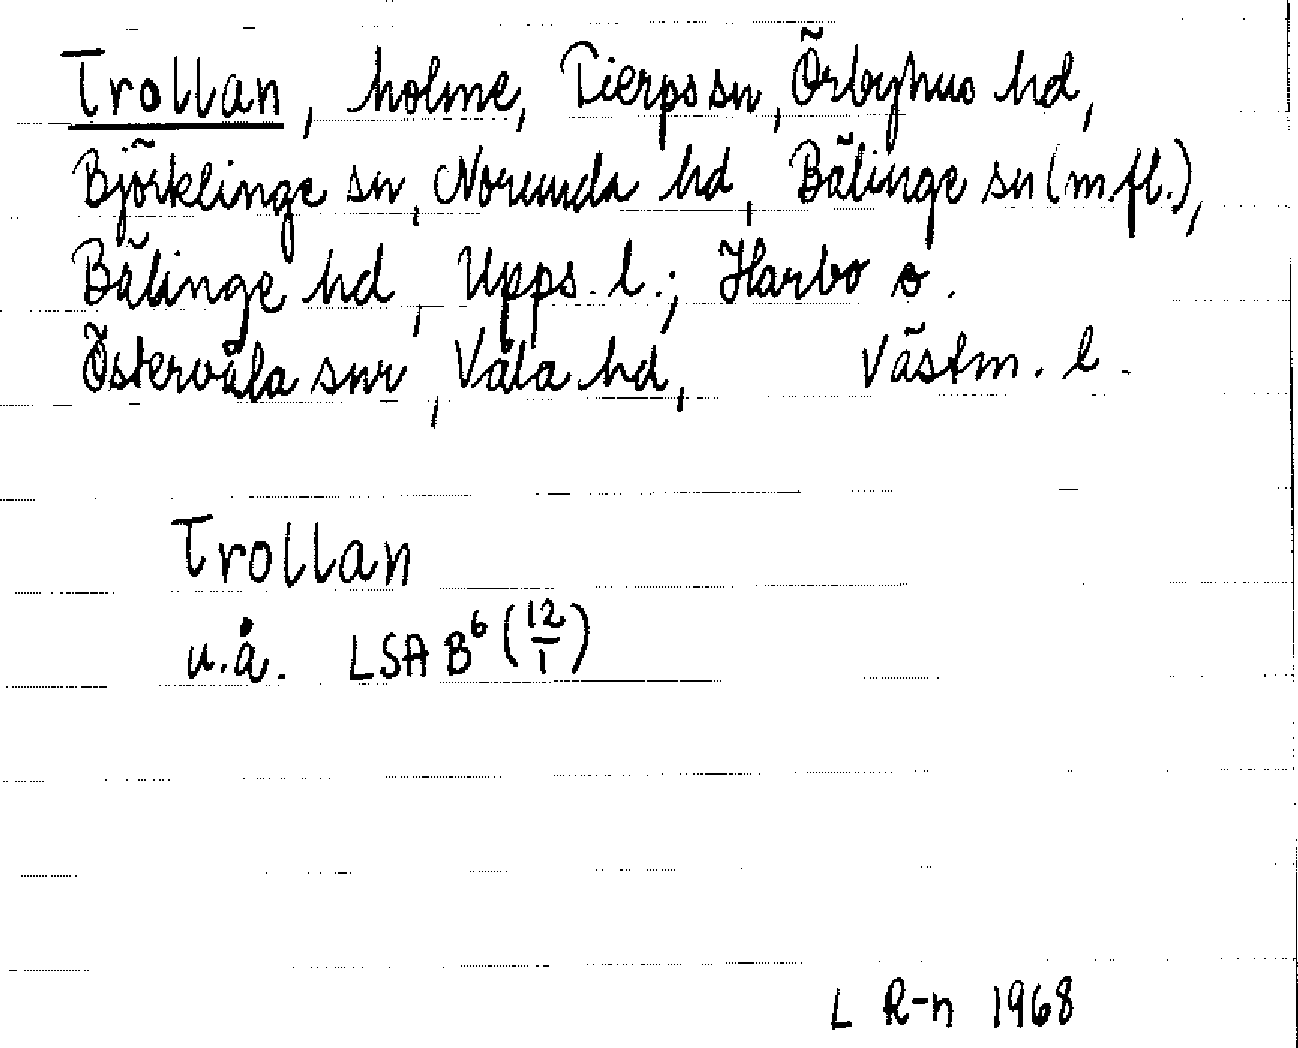 Trollan, holme, Tierps sn, Örbyhus hd,
Björklinge sn, Norunda hd, Bälinge sn (m.fl.),
Bälinge hd, Upps. l.; Harbo o.
Östervåla snr, Våla hd, Västm. l.
Trollan
u.å. LSA B6 (12/1)
L R-n 1968